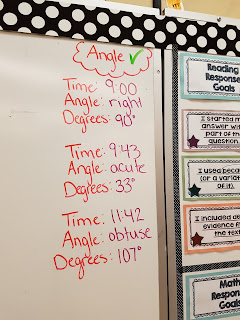 Angle ✓
Time: 9:00
Angle: right
Degrees: 90°
Time: 9:43
Angle: acute
Degrees: 33°
Time: 11:42
Angle: obtuse
Degrees: 107°
Reading
Response
Goals
I started m
answer wit
part of th
question.
I used beca
(or a variat
of it).
I included a
evidence f
the text
Math
Respon
Goals